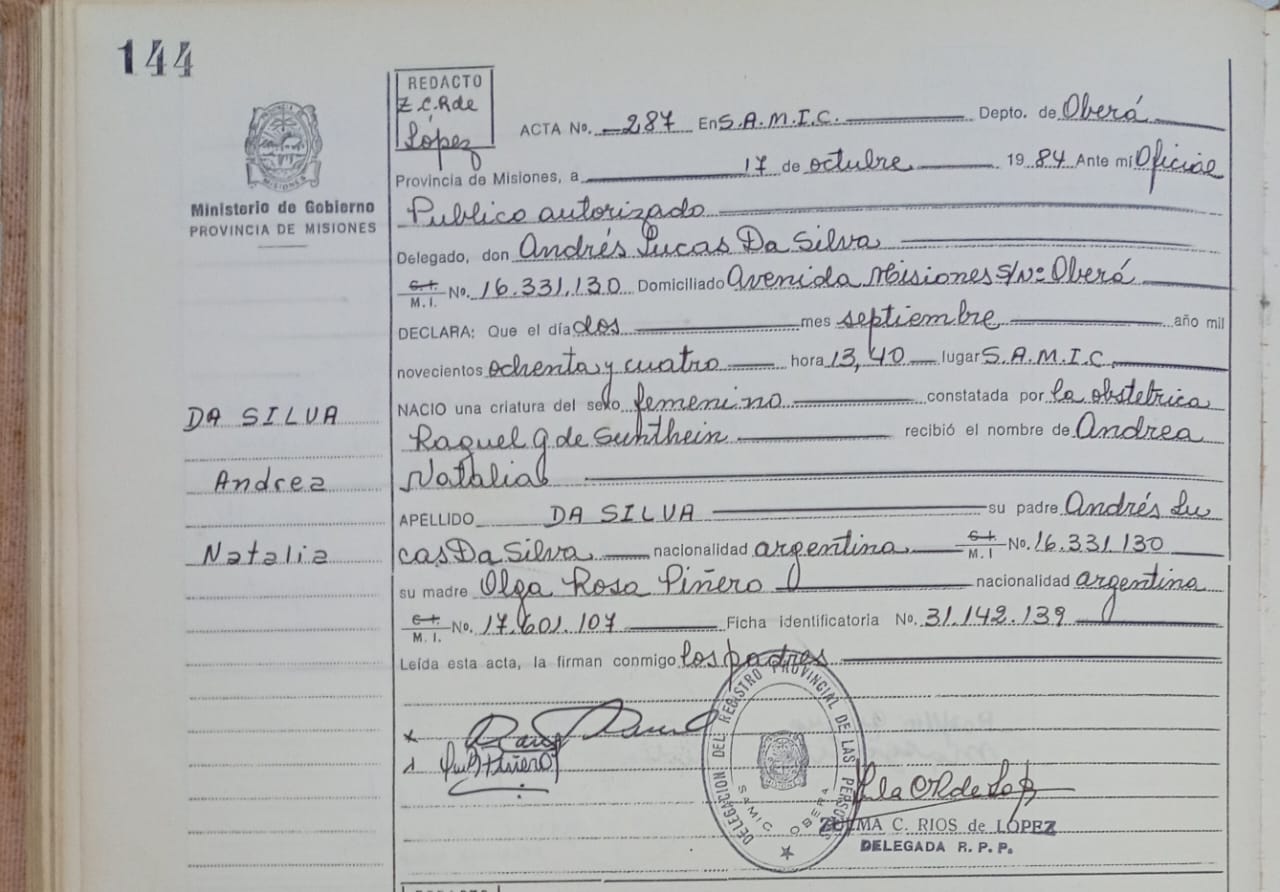 144
REDACTO
Z.C.R de
López
ACTA No. 287 En S.A.M.I.C. Depto. de Oberá
Provincia de Misiones, a 17 de octubre 1984 Ante mí Oficial
Publico autorizado
Delegado, don Andrés Lucas Da Silva
C.I. M.I. No. 16.331.130 Domiciliado Avenida Misiones S/Nº Oberá
DECLARA: Que el día dos mes septiembre año mil
novecientos ochenta y cuatro hora 13,40 lugar S.A.M.I.C.
NACIO una criatura del sexo femenino constatada por la obstetrica
Raquel G de Sunthein recibió el nombre de Andrea
Natalia
APELLIDO DA SILVA su padre Andrés Lu
cas Da Silva nacionalidad argentina C.I. M.I No. 16.331.130
su madre Olga Rosa Piñero nacionalidad argentina
C.I. M.I. No. 17.601.107 Ficha identificatoria No. 31.142.139
Leída esta acta, la firman conmigo los padres
PROVINCIA DE
MISIONES
Ministerio de Gobierno
PROVINCIA DE MISIONES
DA SILVA
Andrea
Natalia
DELEGACION DEL REGISTRO PROVINCIAL DE LAS PERSONAS
SAMIC OBERA
ZULMA C. RIOS de LOPEZ
DELEGADA R. P. P.